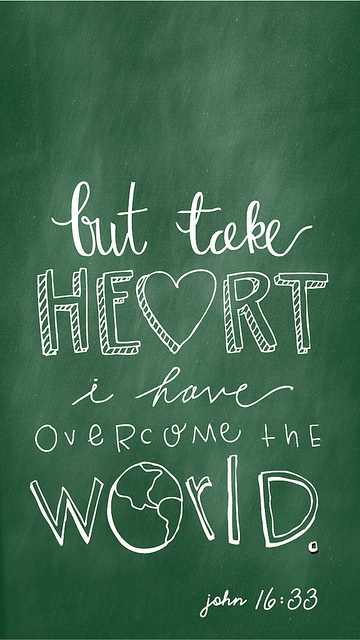 but take
HEART
i have
OVERCOME thE
WOrlD.
john 16:33